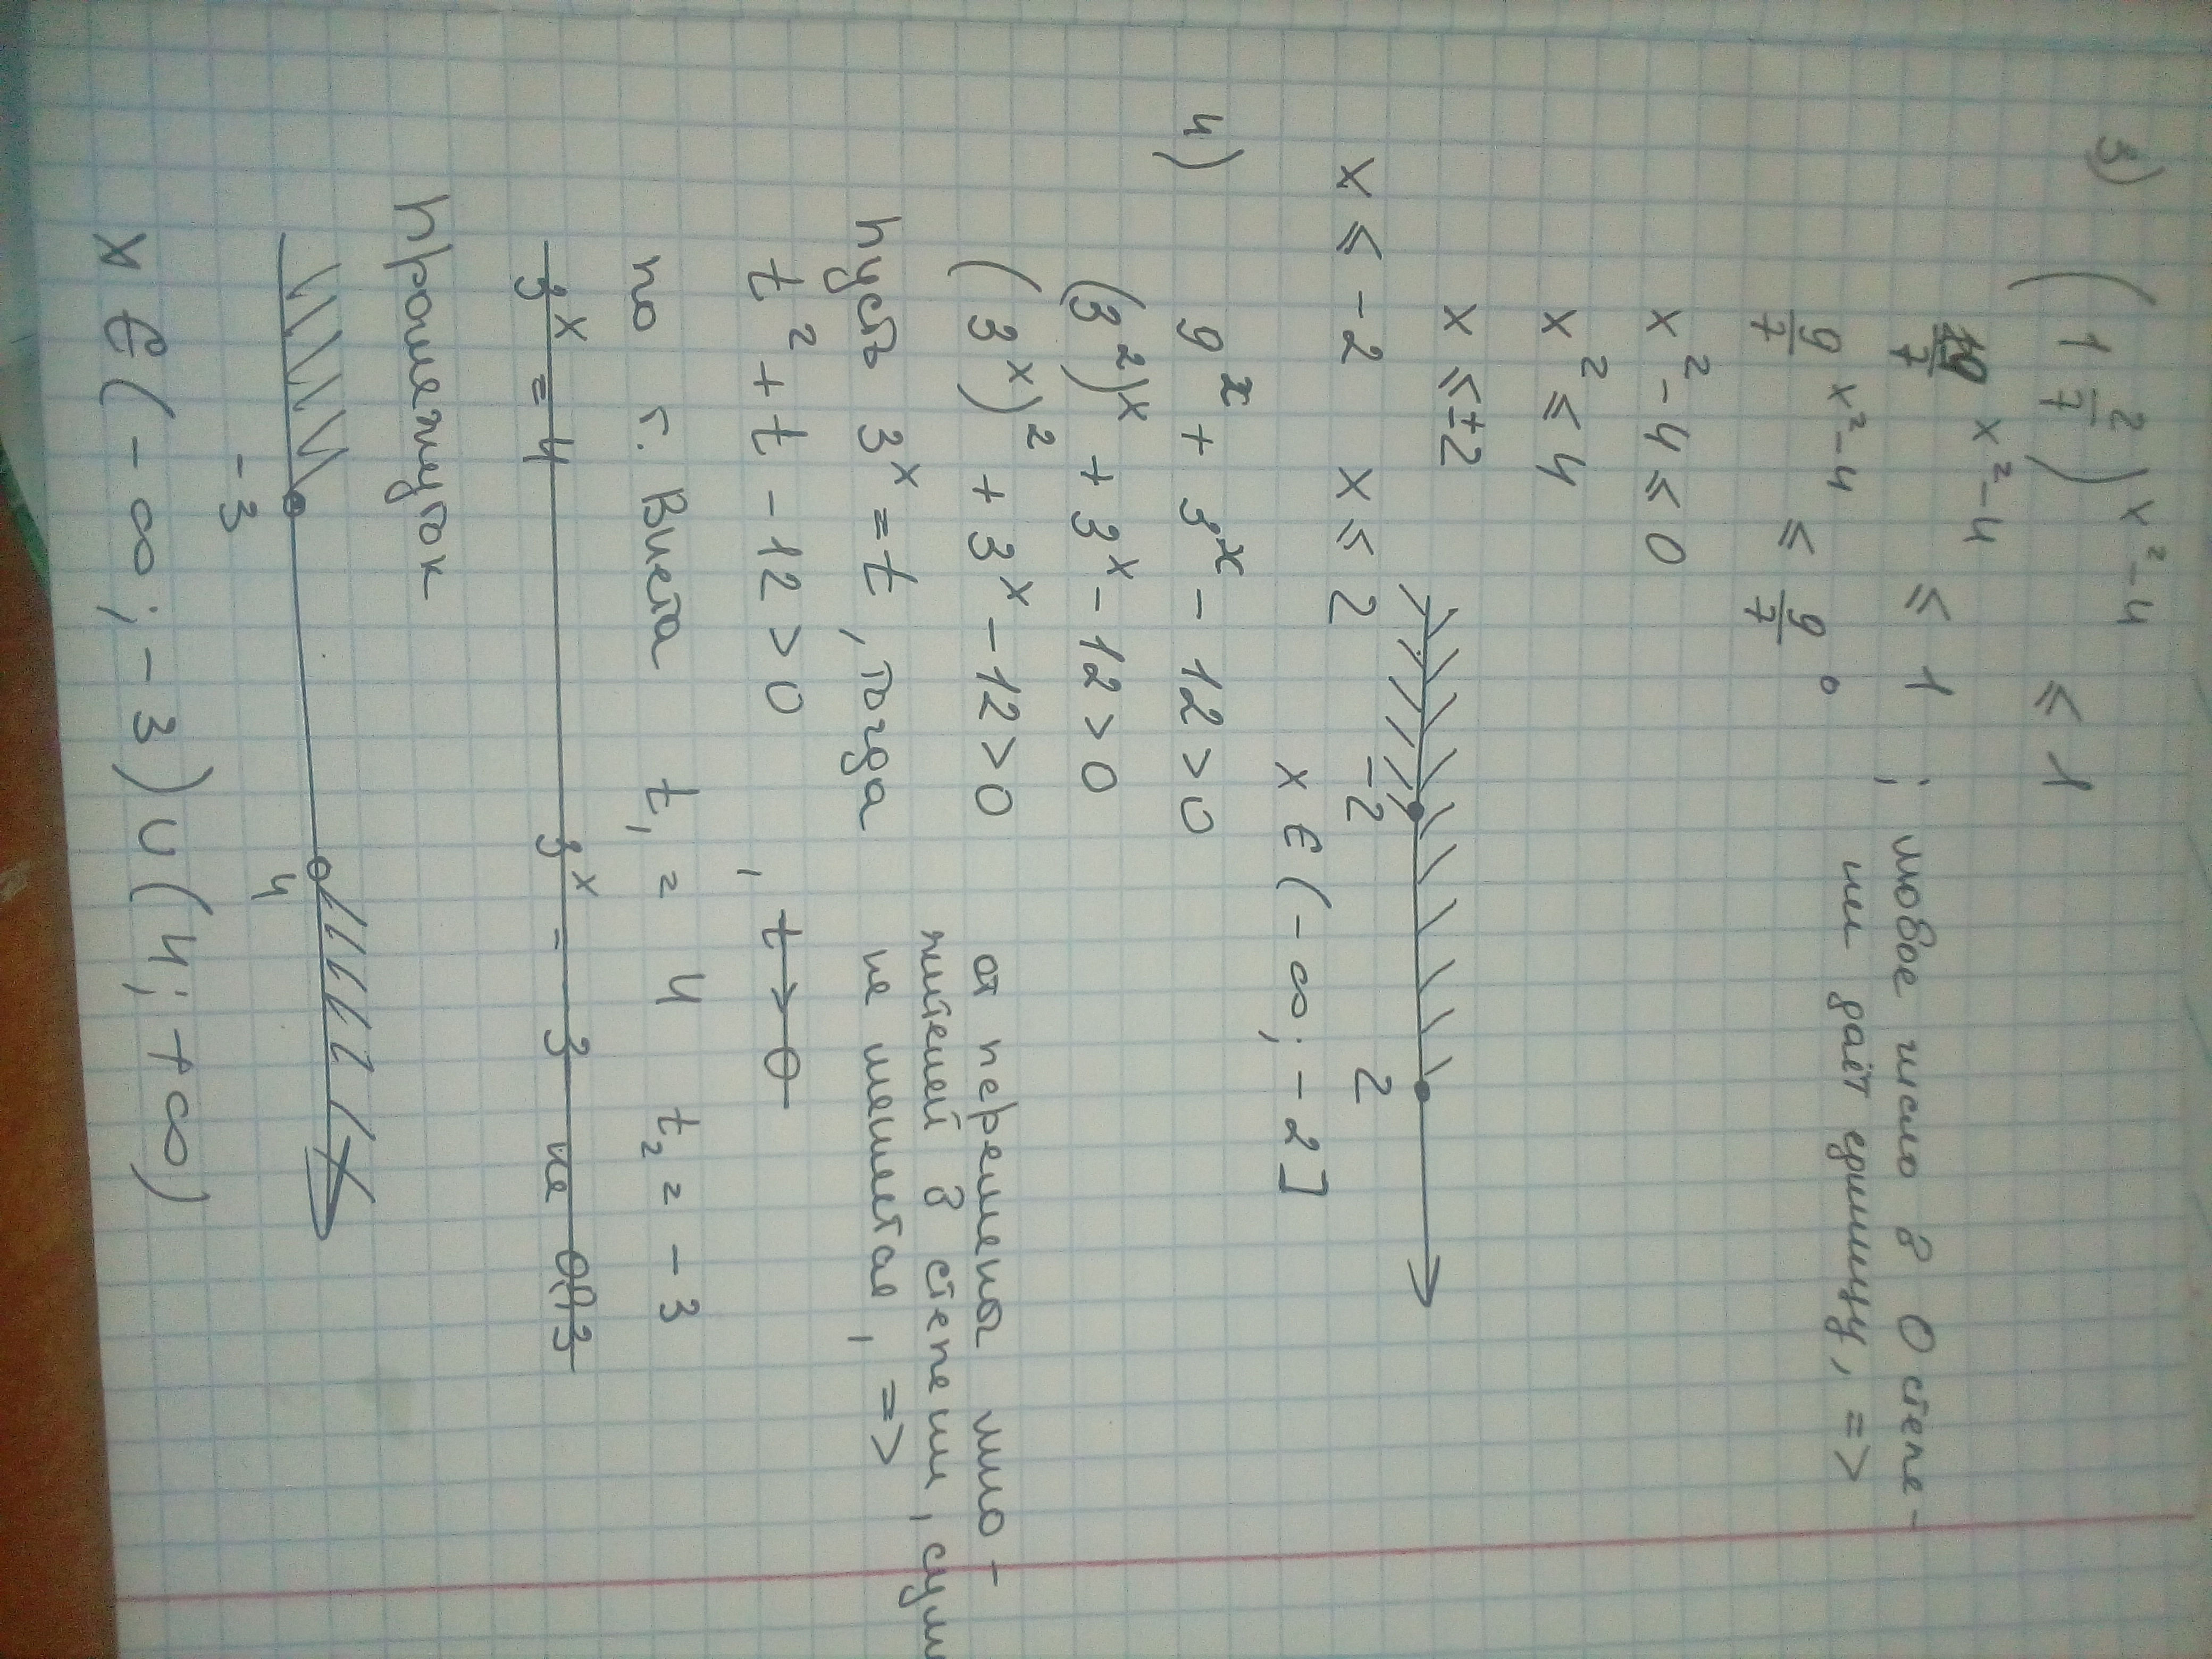 3) (1 2/7)^(x²-4) ≤ 1
9/7 ^(x²-4) ≤ 1 ; любое число в 0 степе-
9/7 ^(x²-4) ≤ 9/7 ^0 ни даёт единицу, =>
x² - 4 ≤ 0
x² ≤ 4
x ≤ ±2
-2 2
x ≤ -2 x ≤ 2
x ∈ (-∞; -2]
4) 9^x + 3^x - 12 > 0
(3²)^x + 3^x - 12 > 0
(3^x)² + 3^x - 12 > 0 от перемены мно-
жителей в степени, сум
Пусть 3^x = t, тогда не меняется, =>
t² + t - 12 > 0 , t > 0
по т. Виета t₁ = 4 t₂ = -3
3^x = 4 3^x = -3 не ОДЗ
Промежуток
-3 4
x ∈ (-∞; -3) ∪ (4; +∞)